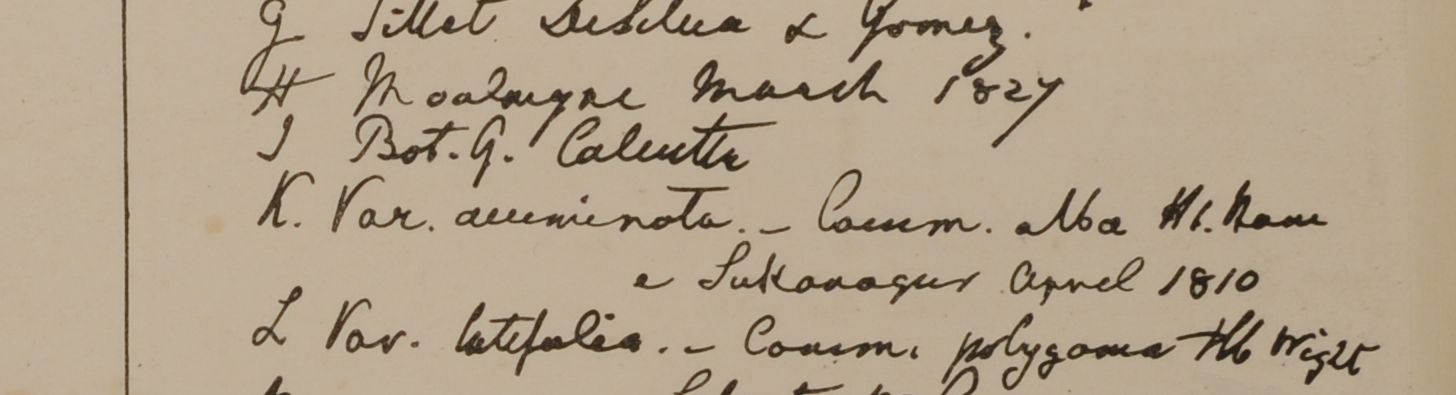 G Sillet DeSilva & Gomez.
H Moalmyne March 1827
I Bot. G. Calcutta
K. Var. accuminata. - Comm. alba Hb. Ham
e Sukanagur April 1810
L Var. latifolia. - Comm. polygama Hb Wight